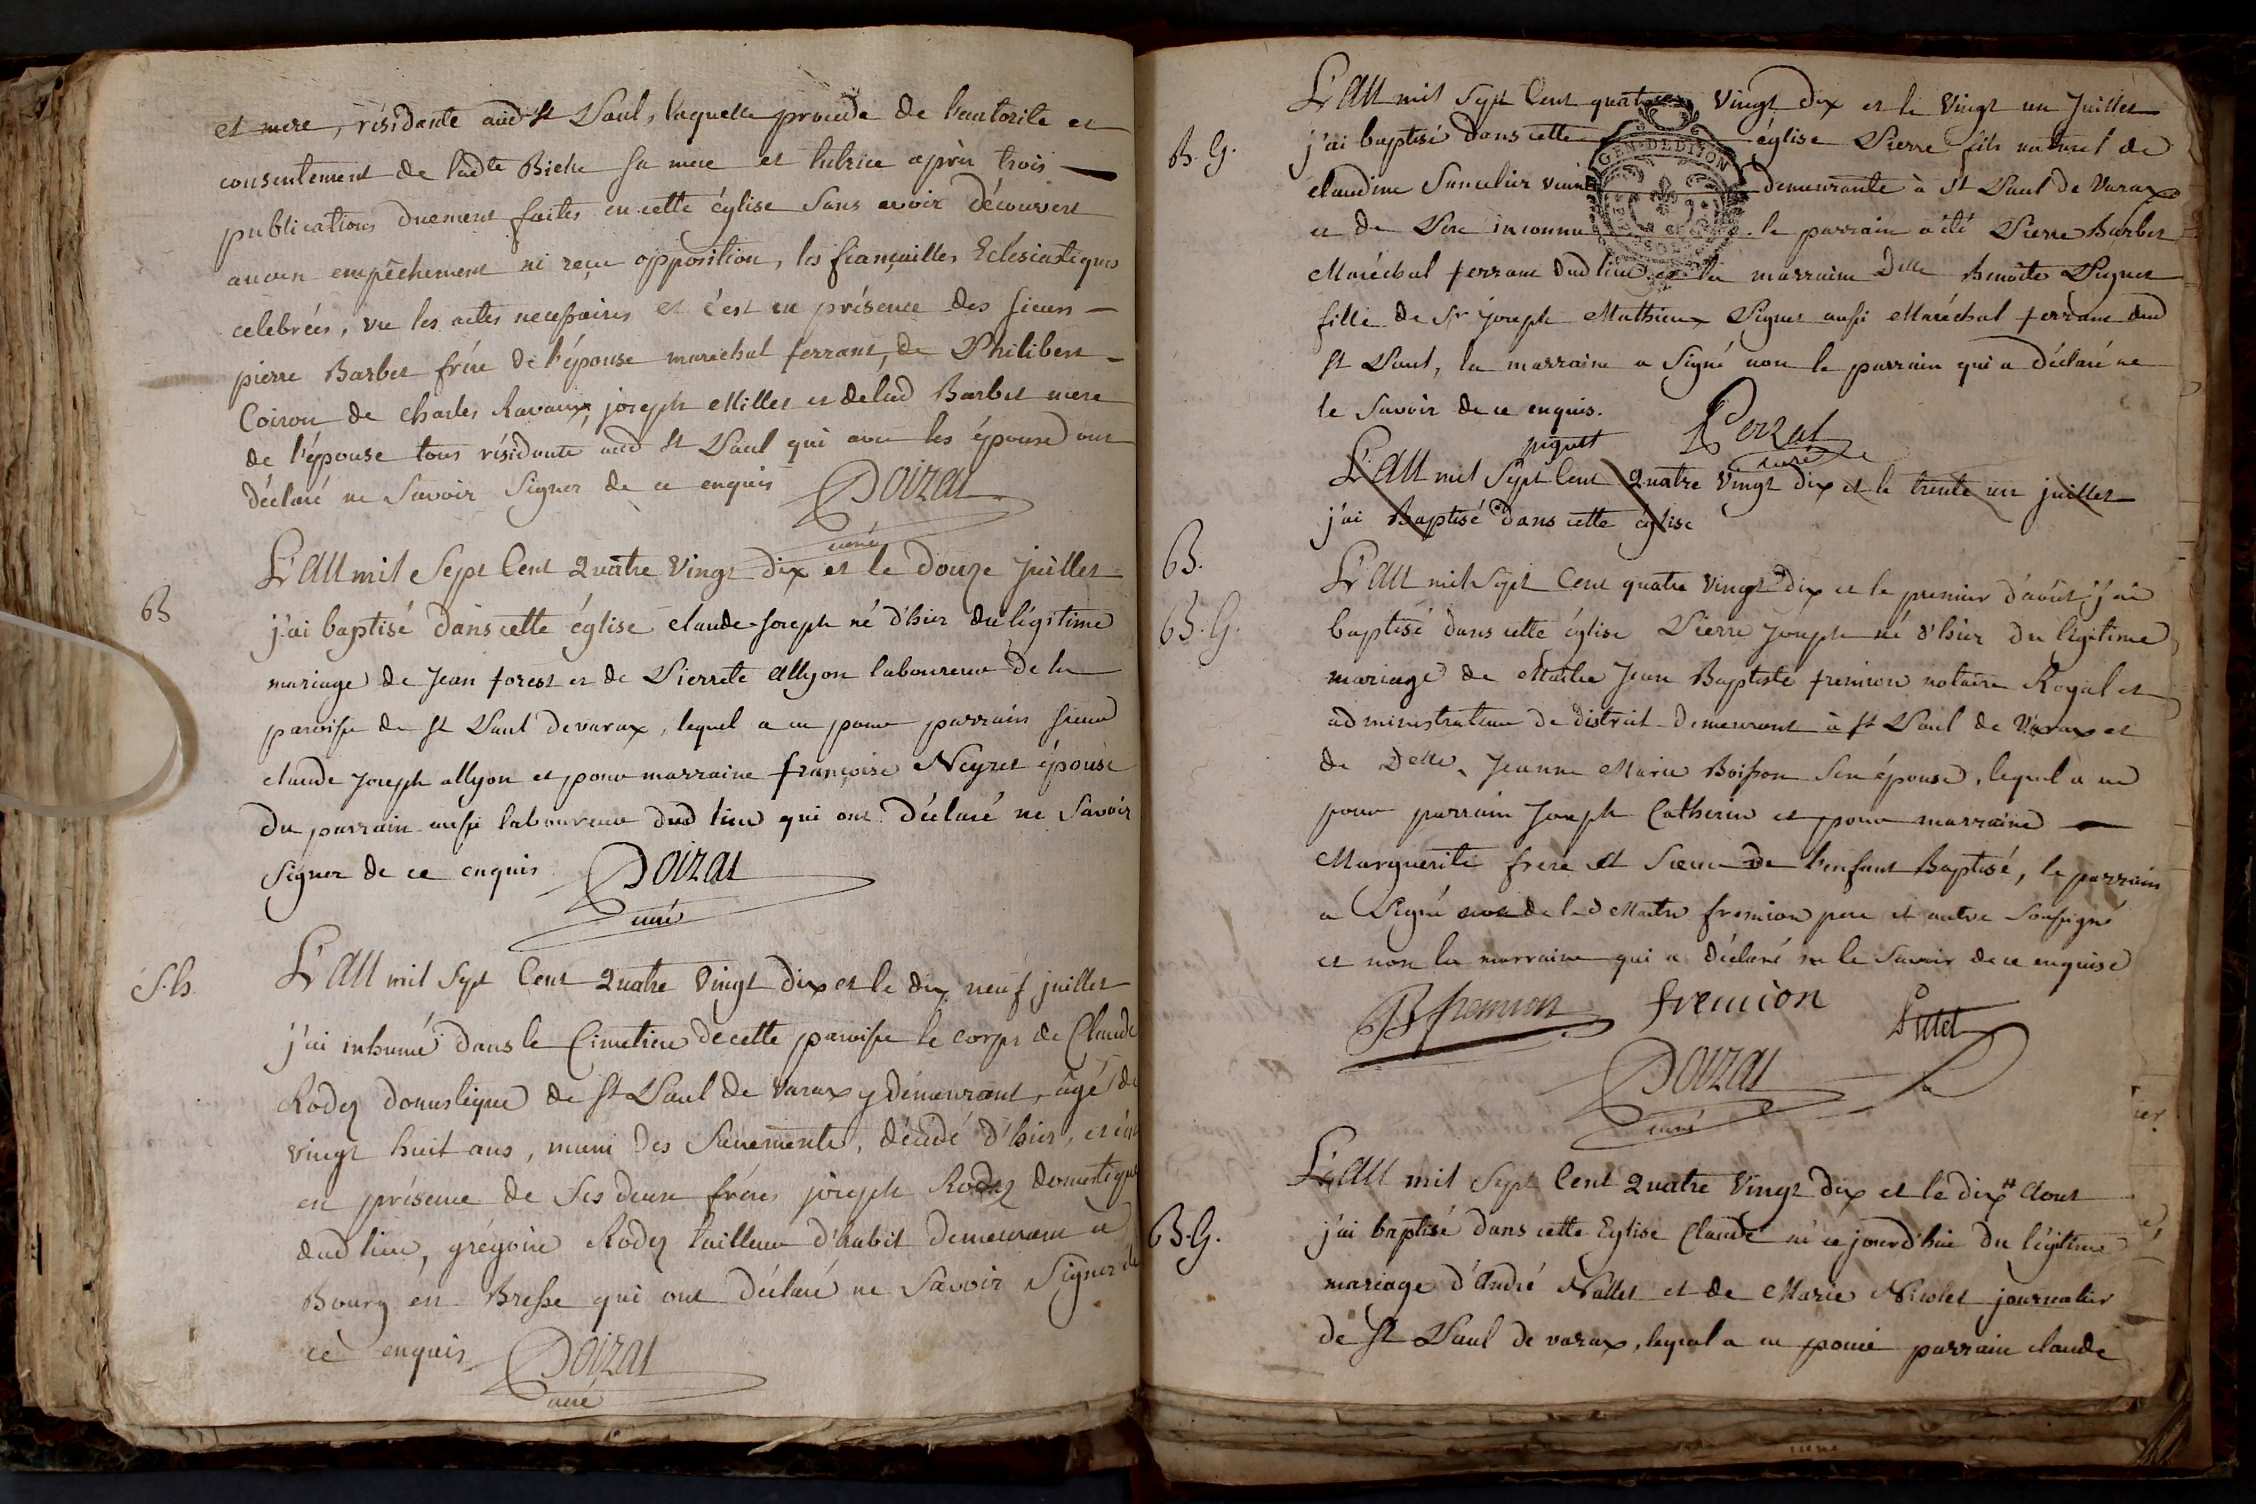 et mere, résidante aud St Paul, laquelle procede de l'autorité et
consentement de ladte Biche sa mere et tutrice après trois
publications duement faites en cette église sans avoir découvert
aucun empêchement ni reçu opposition, les fiançailles Eclesiastiques
célébrées, vu les actes necessaires et c'est en présence des sieurs
pierre Barbet frére de l'épouse maréchal ferrant, de Philibert
Coiron de Charles Ravaux, joseph Millet et delad Barbet mere
de l'épouse tous résidants aud St Paul qui avec les épouse ont
déclaré ne savoir signer de ce enquis Poizat
curé
B
L'an mil Sept Cent Quatre Vingt dix et le douze Juillet
j'ai baptisé dans cette église claude-Joseph né d'hier du légitime
mariage de Jean forest et de Pierrete allyon laboureur de la
paroisse de St Paul devarax, lequel a eu pour parrain sieur
claude Joseph allyon et pour marraine françoise Neyret épouse
du parrain aussi laboureur dud lieu qui ont déclaré ne Savoir
Signer de ce enquis Poizat
curé
S.h.
L'an mil Sept Cent Quatre Vingt dix et le dix neuf juillet
j'ai inhumé dans le Cimetiere de cette paroisse le corps de Claude
Rodez domestique de St Paul de varax y démeurant, âgé de
vingt huit ans, muni des Sacrements, décédé d'hier, et c'est
en présence de ses deux fréres joseph Rodez domestique
dud lieu, grégoire Rodez tailleur d'habit demeurant a
Bourg en Bresse qui ont déclaré ne Savoir Signer de
ce enquis Poizat
curé
B. G.
L'an mil Sept Cent quatre Vingt dix et le Vingt un Juillet
j'ai baptisé dans cette église Pierre fils naturel de
claudine demeurante à St Paul de Varax
et de Pere inconnu le parrain a été Pierre Barbet
Maréchal ferrant dud lieu et la marraine Dlle Benoite Piguet
fille de Sr joseph Mathieux Piguet aussi Maréchal ferrant dud
St Paul, la marraine a Signé non le parrain qui a déclaré ne
le Savoir de ce enquis.
piguet Poizat
curé
GEN. DE DIJON
B.
L'an mil Sept Cent Quatre Vingt dix et le trente un juillet
j'ai Baptisé dans cette église
B. G.
L'an mil Sept Cent quatre Vingt dix et le premier d'août j'ai
baptisé dans cette église Pierre Joseph né d'hier du légitime
mariage de Maitre Jean Baptiste fremion notaire Royal et
administrateur de district demeurant à St Paul de Varax et
de Delle Jeanne Marie Boisson son épouse, lequel a eu
pour parrain Joseph Catherin et pour marraine
Marguerite frere et Soeur de l'enfant Baptisé, le parrain
a Signé de led Maitre fremion pere et autre Soussigné
et non la marraine qui a déclaré ne le Savoir de ce enquise
fremion fremion Pittet
Poizat
curé
B. G.
L'an mil Sept Cent Quatre Vingt dix et le dix Aout
j'ai baptisé dans cette Eglise Claude né ce jourd'hui du légitime
mariage d'André Nallet et de Marie Nicolet journalier
de St Paul de varax, lequel a eu pour parrain claude